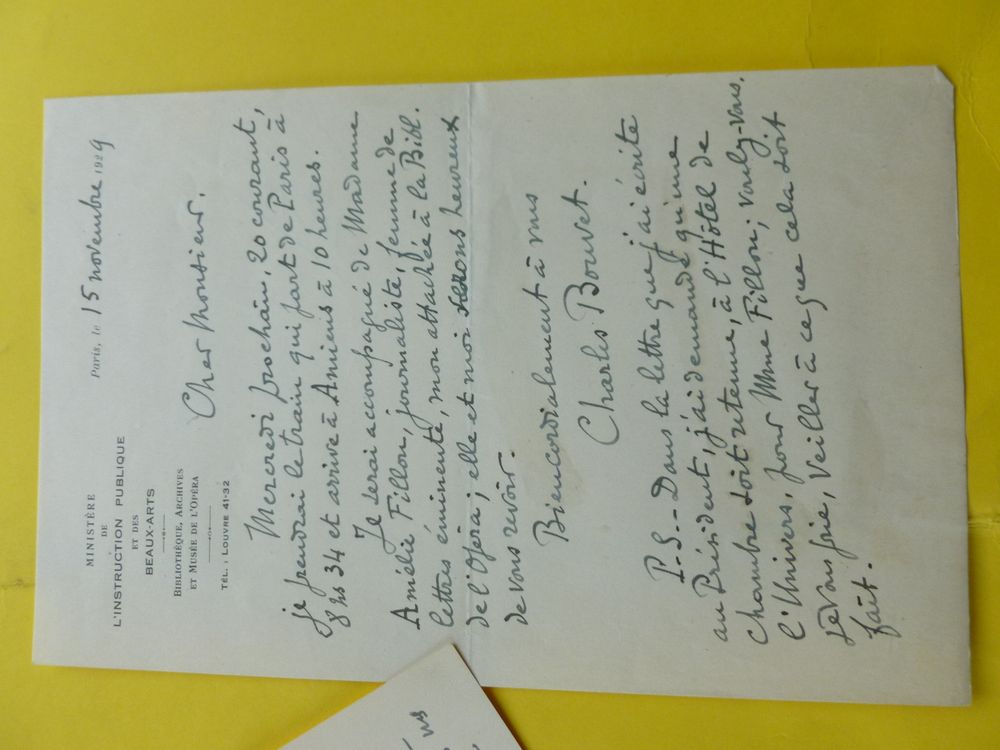 MINISTÈRE
DE
L'INSTRUCTION PUBLIQUE
ET DES
BEAUX-ARTS
BIBLIOTHÈQUE, ARCHIVES
ET MUSÉE DE L'OPÉRA
TÉL. : LOUVRE 41-32
Paris, le 15 novembre 1929
Cher Monsieur.
Mercredi prochain, 20 courant,
je prendrai le train qui part de Paris à
8 hs 34 et arrive à Amiens à 10 heures.
Je serai accompagné de Madame
Amélie Fillon, journaliste, femme de
lettres éminente, mon attachée à la Bibl.
de l'Opéra; elle et moi serons heureux
de vous revoir.
Bien cordialement à vous
Charles Bouvet.
P.S. - Dans la lettre que j'ai écrite
au Président, j'ai demandé qu'une
chambre soit retenue, à l'Hôtel de
l'Univers, pour Mme Fillon; voulez-vous,
je vous prie, veiller à ce que cela soit
fait.